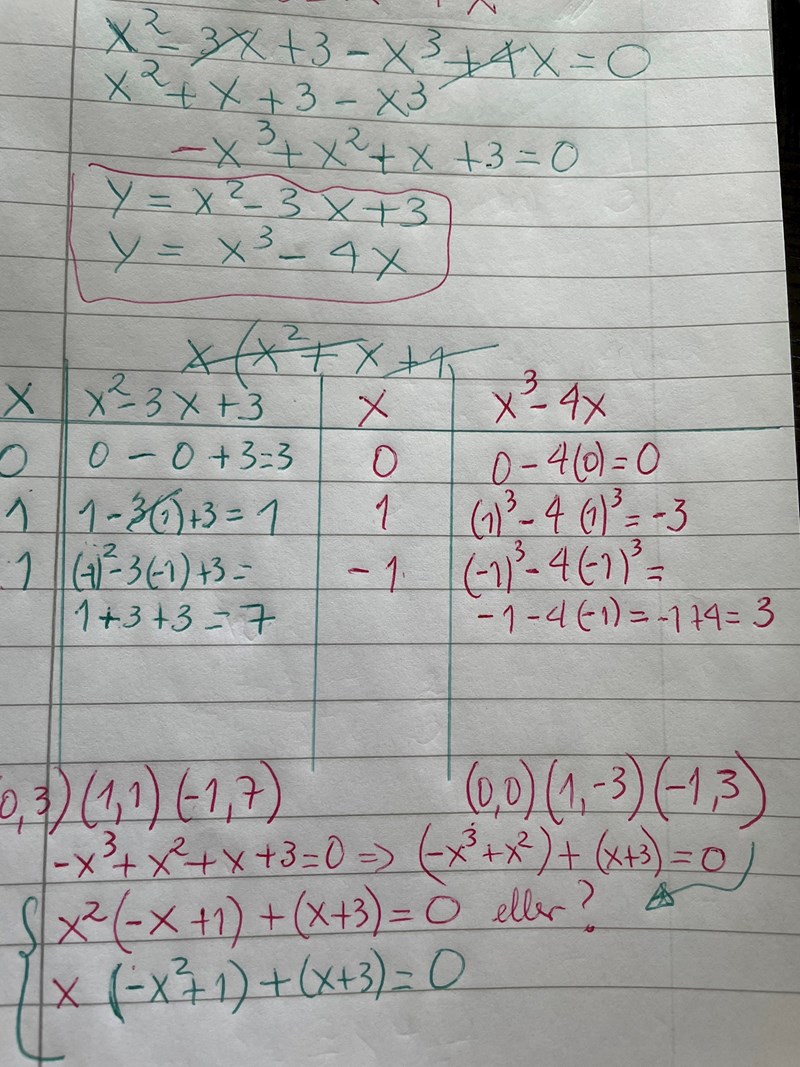 x² - 3x + 3 - x³ + 4x = 0
x² + x + 3 - x3
-x³ + x² + x + 3 = 0
y = x² - 3x + 3
y = x³ - 4x
x(x² + x + 1
x | x² - 3x + 3 | x | x³ - 4x
0 | 0 - 0 + 3 = 3 | 0 | 0 - 4(0) = 0
1 | 1 - 3(1) + 3 = 1 | 1 | (1)³ - 4(1)³ = -3
1 | (-1)² - 3(-1) + 3 = | -1 | (-1)³ - 4(-1)³ =
1 + 3 + 3 = 7 | -1 - 4(-1) = -1 + 4 = 3
0,3) (1,1) (-1,7) (0,0) (1,-3) (-1,3)
-x³ + x² + x + 3 = 0 => (-x³ + x²) + (x+3) = 0
x²(-x + 1) + (x+3) = 0 eller?
x (-x² + 1) + (x+3) = 0